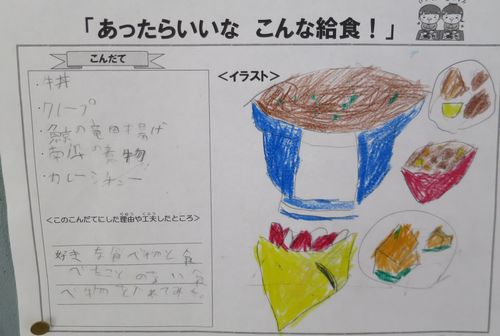 「あったらいいな こんな給食！」
こんだて
・牛丼
・クレープ
・鯨の竜田揚げ
・南瓜の煮物
・カレーシチュー
<イラスト>
<このこんだてにした理由や工夫したところ>
好きな食べ物と食
べたことのない食
べ物を入れてみた。